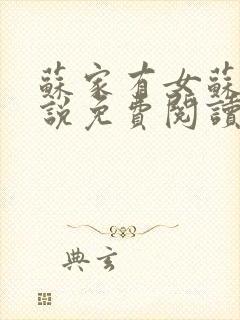 蘇家有女蘇
說免費閱讀
典玄